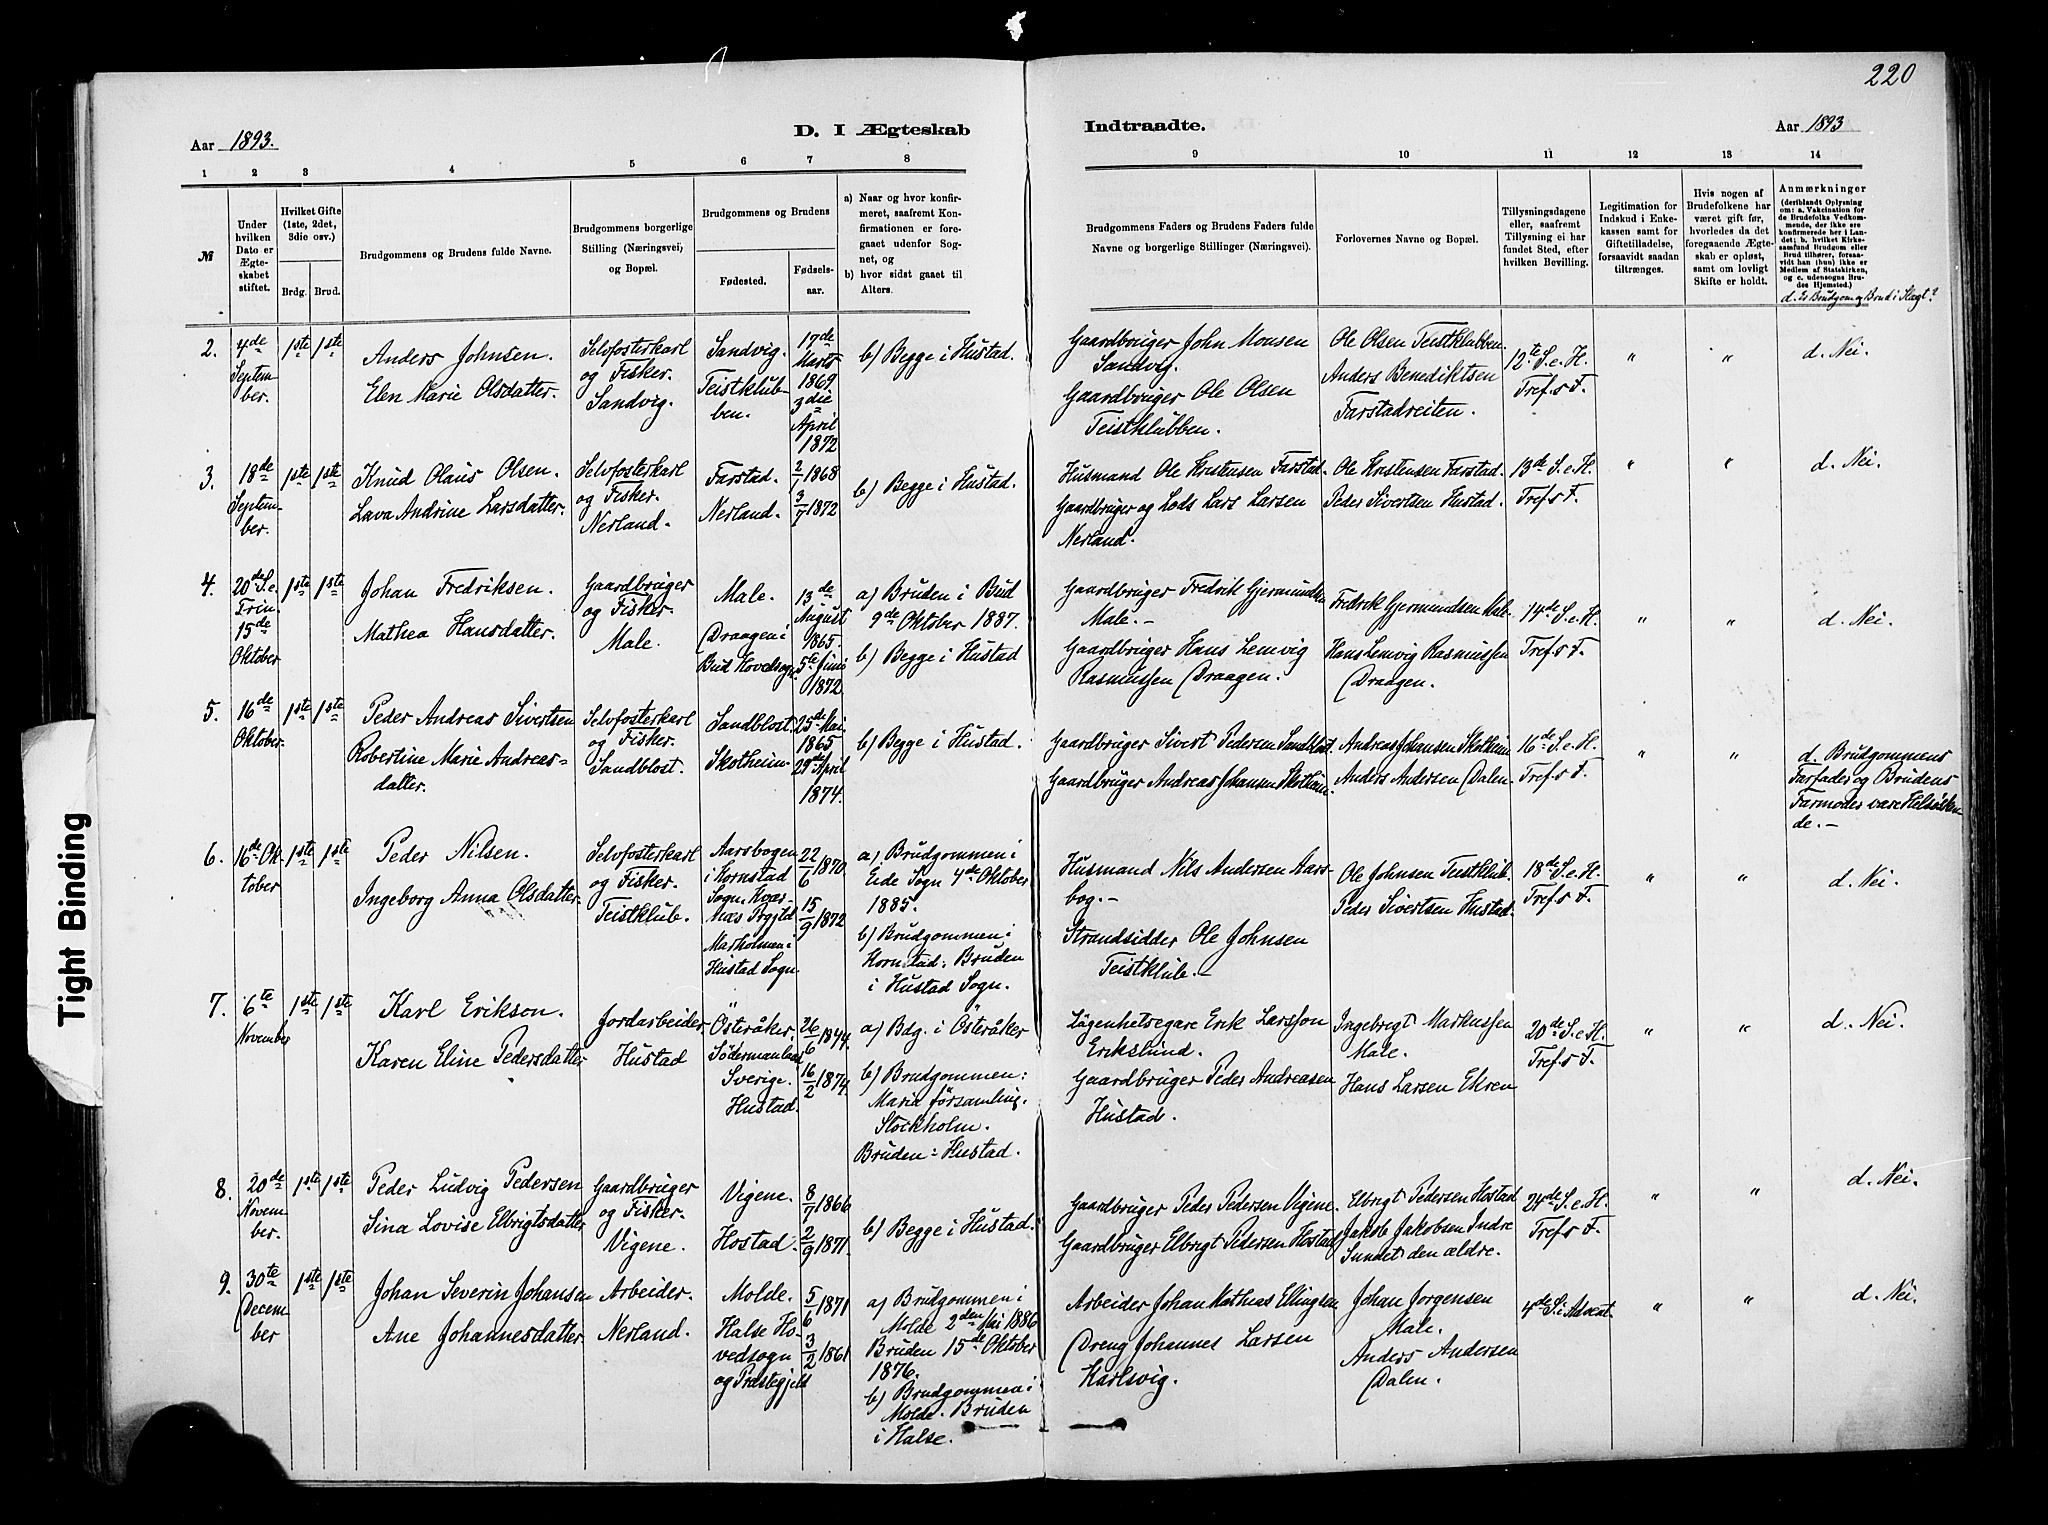 220
D. I Ægteskab Indtraadte.
Aar 1893.
Aar 1893
1 2 3 4 5 6 7 8 9 10 11 12 13 14
№
Under hvilken Dato er Ægteskabet stiftet.
Hvilket Gifte (1ste, 2det, 3die osv.)
Brdg. Brud.
Brudgommens og Brudens fulde Navne.
Brudgommens borgerlige Stilling (Næringsvei) og Bopæl.
Brudgommens og Brudens
Fødested.
Fødselsaar.
a) Naar og hvor konfirmeret, saafremt Konfirmationen er foregaaet udenfor Sognet, og
b) hvor sidst gaaet til Alters.
Brudgommens Faders og Brudens Faders fulde Navne og borgerlige Stillinger (Næringsvei).
Forlovernes Navne og Bopæl.
Tillysningsdagene eller, saafremt Tillysning ei har fundet Sted, efter hvilken Bevilling.
Legitimation for Indskud i Enkekassen samt for Giftetilladelse, forsaavidt saadan tiltrænges.
Hvis nogen af Brudefolkene har været gift før, hvorledes da det foregaaende Ægteskab er opløst, samt om lovligt Skifte er holdt.
Anmærkninger
(deriblandt Oplysning om: a. Vakcination for de Brudefolks Vedkommende, der ikke ere konfirmerede her i Landet; b. hvilket Kirkesamfund Brudgom eller Brud tilhører, forsaavidt han (hun) ikke er Medlem af Statskirken, og c. udensogns Brudes Hjemsted.)
d. Er Brudgom og Brud i Slægt?
2.
4de September.
1ste 1ste
Anders Johnsen.
Elen Marie Olsdatter.
Selvfosterkarl
og Fisker.
Sandvig.
Sandvig.
Teistklubben.
17de Marts 1869
3die April 1872
b) Begge i Hustad.
Gaardbruger John Monsen
Sandvig.
Gaardbruger Ole Olsen
Teistklubben.
Ole Olsen Teistklubben.
Anders Benediktsen
Farstadreiten.
12te S.e.H.
Tref.s F.
"
"
d. Nei.
3.
18de September.
1ste 1ste
Knud Olaus Olsen.
Lava Andrine Larsdatter.
Selvfosterkarl
og Fisker.
Nerland.
Farstad.
Nerland.
2/1 1868
3/7 1872
b) Begge i Hustad.
Husmand Ole Kristensen Farstad.
Gaardbruger og Lods Lars Larsen
Nerland.
Ole Kristensen Farstad.
Peder Sivertsen Hustad.
13de S.e.H.
Tref.s F.
"
"
d. Nei.
4.
20de S.e. Trin. 15de Oktober
1ste 1ste
Johan Fredriksen.
Mathea Hansdatter.
Gaardbruger
og Fisker.
Male.
Male.
Draagen i
Bud Hovedsogn.
13de August 1865.
5te Juni 1872.
a) Bruden i Bud
9de Oktober 1887.
b) Begge i Hustad
Gaardbruger Fredrik Gjermundsen
Male.-
Gaardbruger Hans Lemvig
Rasmussen Draagen.
Fredrik Gjermundsen Male.
Hans Lemvig Rasmussen
Draagen.
14de S.e.H.
Tref.s F.
"
"
d. Nei.
5.
16de Oktober.
1ste 1ste
Peder Andreas Sivertsen
Robertine Marie Andreas=
datter.
Selvfosterkarl
og Fisker.
Sandblost.
Sandblost.
Skotheim.
25de Mai 1865.
29de April 1874.
b) Begge i Hustad.
Gaardbruger Sivert Pedersen Sandblost.
Gaardbruger Andreas Johansen Skotheim.
Andreas Johansen Skotheim.
Anders Andersen Dalen.
16de S.e.H.
Tref.s F.
"
"
d. Brudgommens
Farfader og Brudens
Farmoder vare Helsøsken-
de.-
6.
16de Oktober
1ste 1ste
Peder Nilsen.
Ingeborg Anna Olsdatter.
Selvfosterkarl
og Fisker.
Teistklub.
Aarsbogen
i Kornstad
Sogn, Kvær-
næs Prgjld
Marholmen i
Hustad Sogn.
22/6 1870.
15/9 1872
a) Brudgommen i
Eide Sogn 4de Oktober
1885.
b) Brudgommen i
Kornstad: Bruden
i Hustad Sogn.
Husmand Nils Andersen Aars-
bog.-
Strandsidder Ole Johnsen
Teistklub.-
Ole Johnsen Teistklub.
Peder Sivertsen Hustad.
18de S.e.H.
Tref.s F.
"
"
d. Nei.
7.
6te November
1ste 1ste
Karl Erikson.
Karen Eline Pedersdatter
Jordarbeider
Hustad
Österåker.
Södermanland
Sverige.
Hustad.
26/6 1844.
16/2 1874.
a) Bdg. i Österåker
b) Brudgommen:
Maria församling.
Stockholm.
Bruden: Hustad.
Lägenhetsegare Erik Larsson
Erikslund.
Gaardbruger Peder Andreasen
Hustad.
Ingebrigt Markussen
Male.
Hans Larsen Ekren
20de S.e.H.
Tref.s F.
"
"
d. Nei.
8.
20de November.
1ste 1ste
Peder Ludvig Pedersen
Sina Lovise Elbrigtsdatter
Gaardbruger
og Fisker.
Vigene.
Vigene.
Hostad.
8/7 1866
2/9 1871.
b) Begge i Hustad.
Gaardbruger Peder Pedersen Vigene.
Gaardbruger Elbrigt Pedersen Hostad
Elbrigt Pedersen Hostad
Jakob Jakobsen Indre
Sundet den ældre.
24de S.e.H.
Tref.s F.
"
"
d. Nei.
9.
30te December
1ste 1ste
Johan Severin Johansen
Ane Johannesdatter
Arbeider.
Nerland.
Molde.
Halse Ho-
vedsogn
og Præstegjeld
5/6 1871
3/2 1861
a) Brudgommen i
Molde 2den Mai 1886
Bruden 15de Oktober
1876.
b) Brudgommen i
Molde. Bruden
i Halse.
Arbeider Johan Mathias Ellingsen
Dreng Johannes Larsen
Karlsvig.
Johan Jorgensen
Male.
Anders Andersen
Dalen.
4de S. i Advent
"
"
d. Nei.
Tight Binding